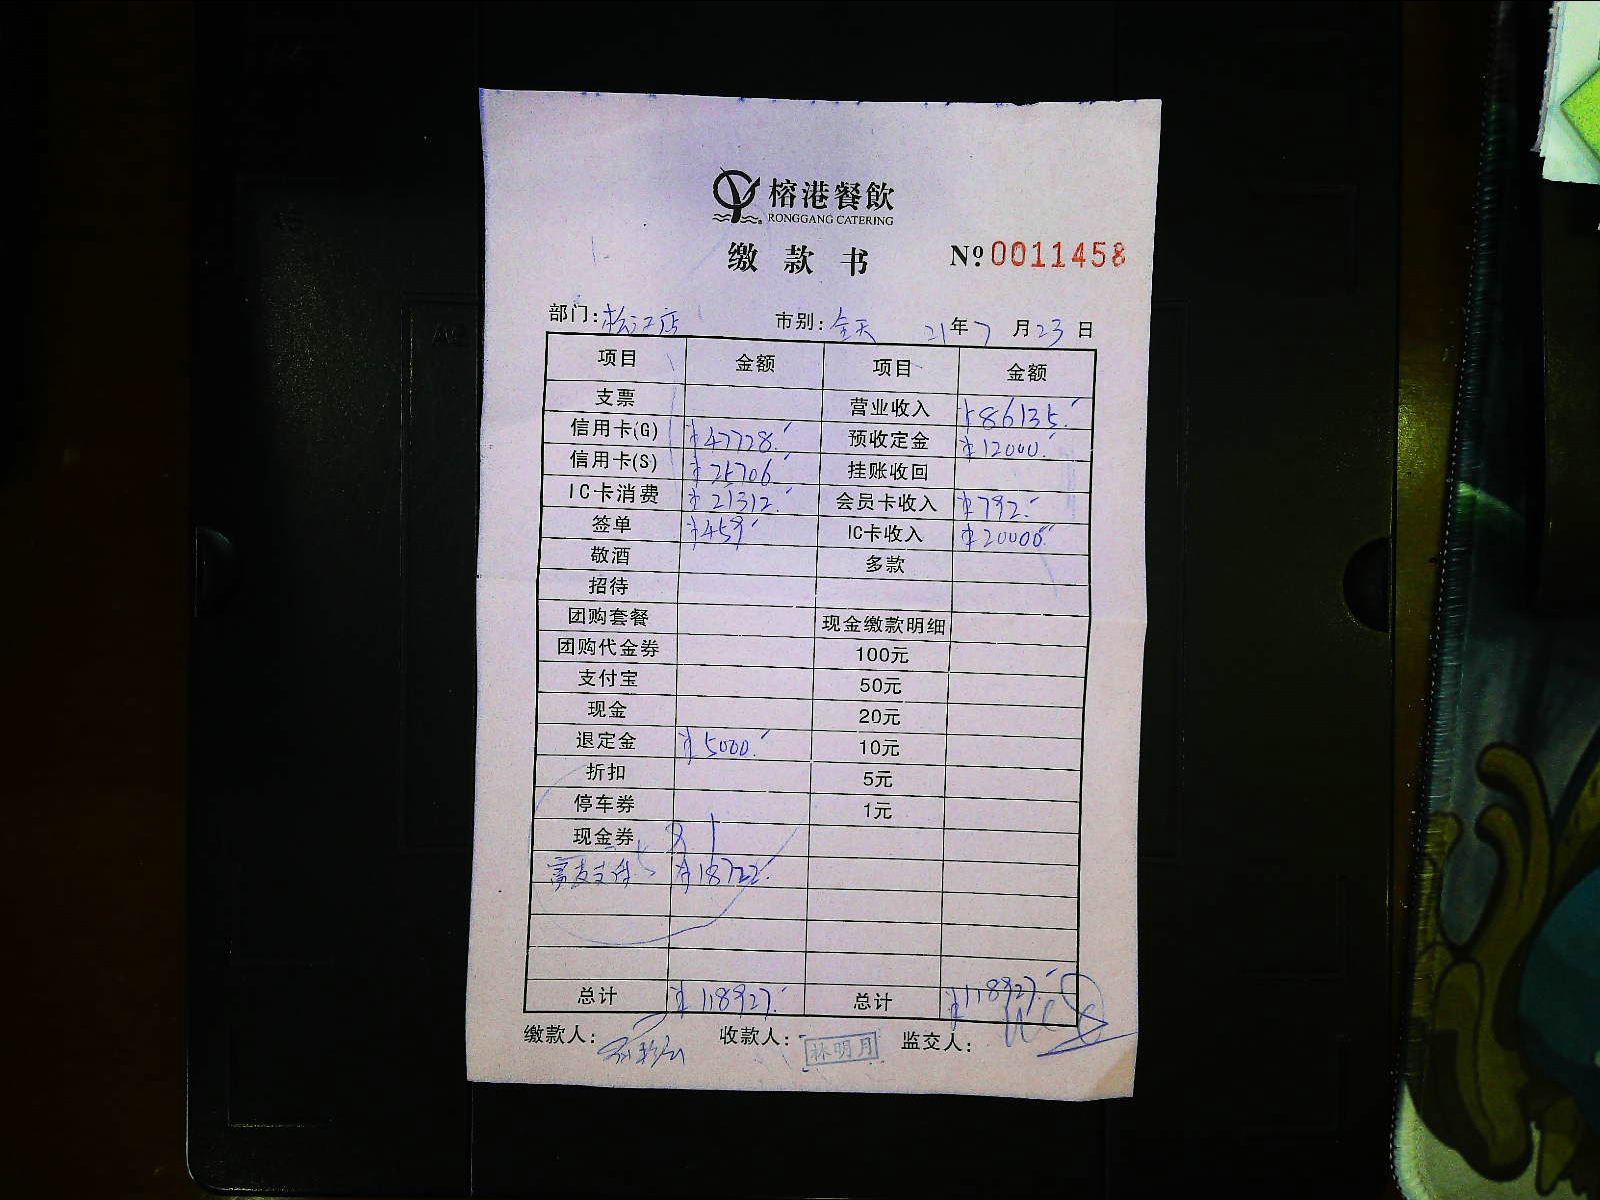 榕港餐飲
RONGGANG CATERING
缴款书 № 0011458
部门: 松江店 市别: 全天 21年7月23日
项目 金额 项目 金额
支票 营业收入 ¥86135.-
信用卡(G) ¥47728.- 预收定金 ¥12000.-
信用卡(S) ¥25706.- 挂账收回
IC卡消费 ¥21312.- 会员卡收入 ¥792.-
签单 ¥459.- IC卡收入 ¥20000.-
敬酒 多款
招待
团购套餐 现金缴款明细
团购代金券 100元
支付宝 50元
现金 20元
退定金 ¥5000.- 10元
折扣 5元
停车券 1元
现金券
支付 ¥18722.-
总计 ¥118927.- 总计 ¥118927.-
缴款人: 收款人: 林明月 监交人: